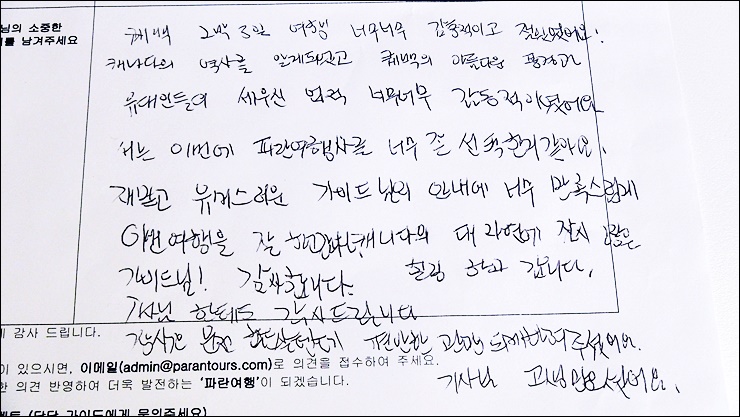 님의 소중한
를 남겨주세요
퀘백 2박 3일 여행 너무너무 감동적이고 정말 였어요!
캐나다의 역사를 알게 되었고 퀘백의 아름다운 풍경과
유대인들이 세우신 업적 너무너무 감동적이였어요
저는 이번에 파란여행사를 너무 잘 선택한거 같아요.
재밌고 유머스러운 가이드님의 안내에 너무 만족스럽게
이번여행을 잘 하고 캐나다의 대 자연에 잠시
가이드님! 감사합니다. 힐링 하고 갑니다.
기사님 한테도 감사드립니다
운전 편안한 관광 되게하여 주셨어요.
기사님 고생 많으셨어요.
에 감사 드립니다.
이 있으시면, 이메일(admin@parantours.com)로 의견을 접수하여 주세요.
한 의견 반영하여 더욱 발전하는 '파란여행'이 되겠습니다.
(담당 가이드에게 문의주세요)